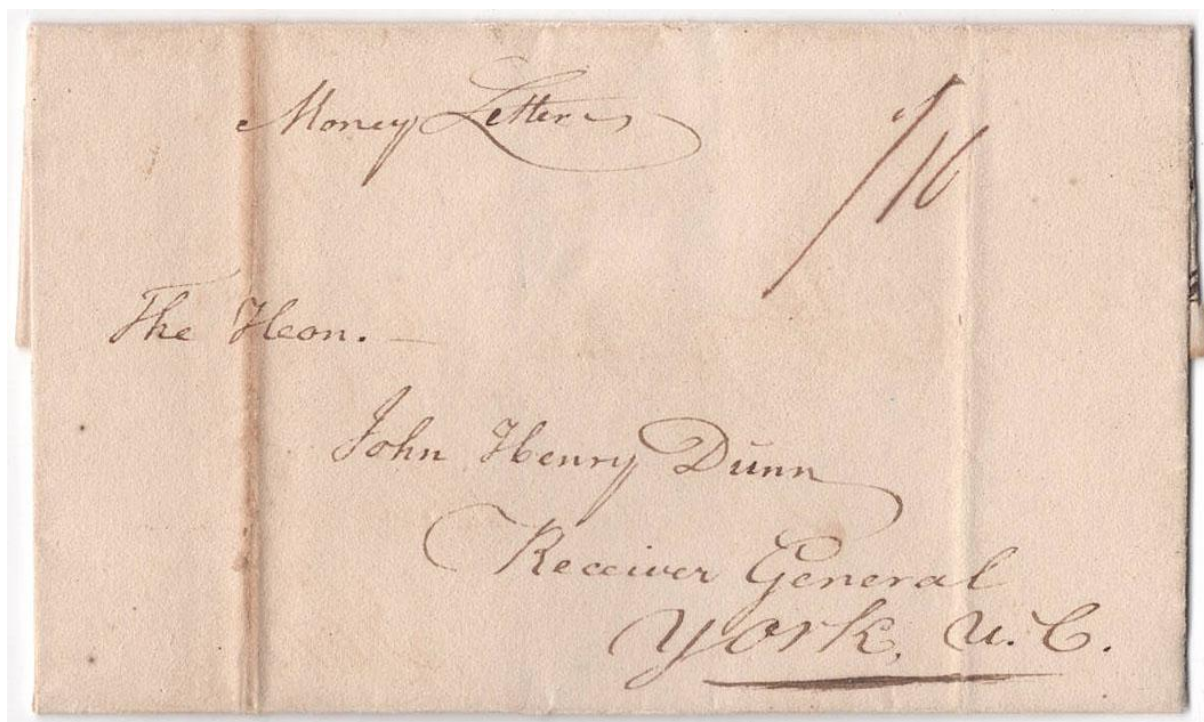 Money Letter
1/16
The Hon.
John Henry Dunn
Receiver General
York, U.C.